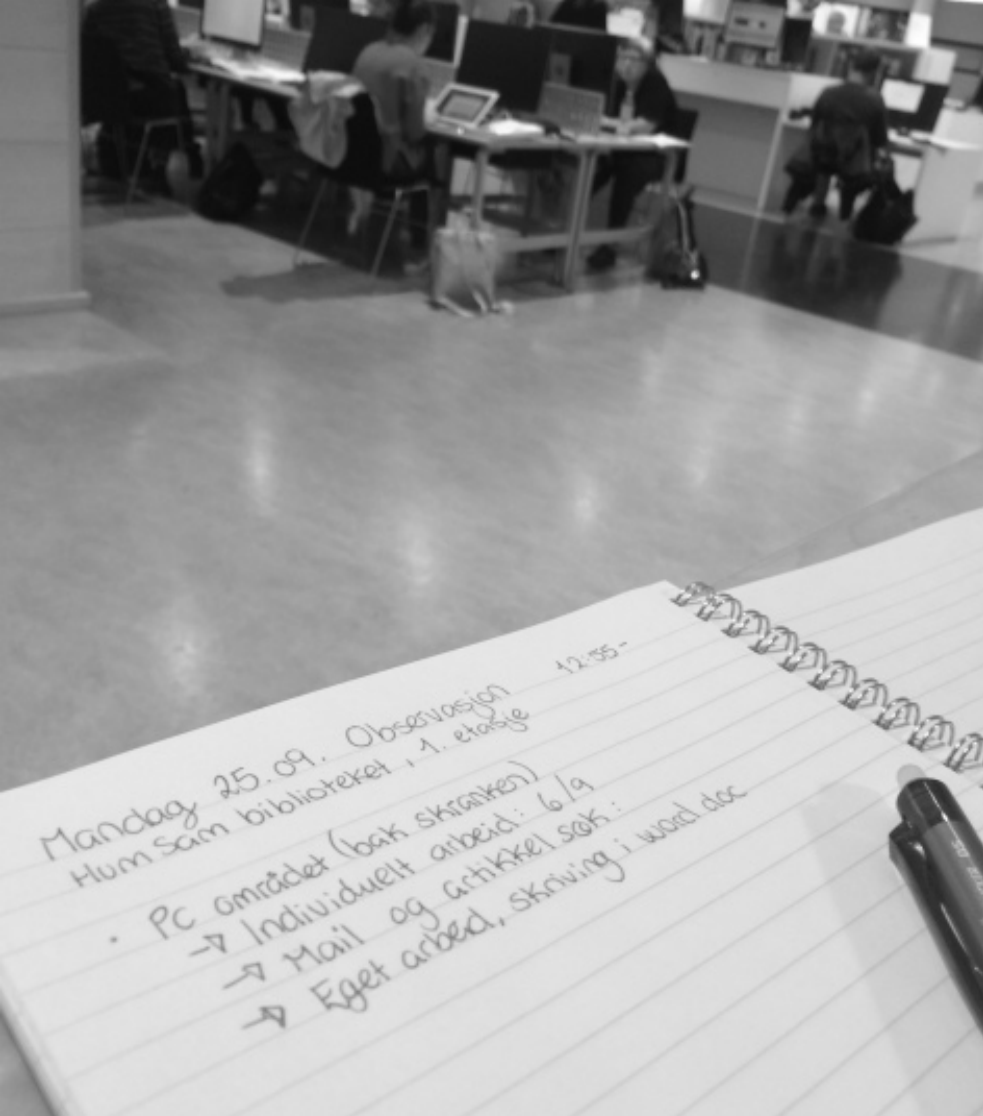 Mandag 25.09. Observasjon 12:55-
HumSam biblioteket, 1. etasje
• Pc området (bak skranken)
→ Individuelt arbeid: 6/9
→ Mail og artikkel søk:
→ Eget arbeid, skriving i word doc